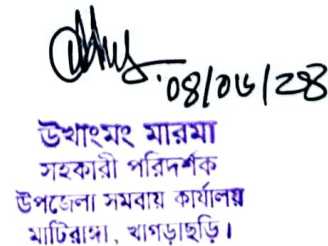 ০৪/০৬/২৪
উখাংমং মারমা
সহকারী পরিদর্শক
উপজেলা সমবায় কার্যালয়
মাটিরাঙ্গা, খাগড়াছড়ি।